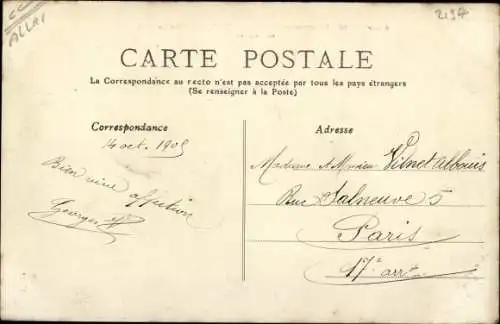 CC
ALLRI
2197
CARTE POSTALE
La Correspondance au recto n'est pas acceptée par tous les pays étrangers
(Se renseigner à la Poste)
Correspondance
oct. 1905
Bien vive affection
Georges
Adresse
Madame et Monsieur Vilnet Albouis
Rue Salneuve 5
Paris
17e arrt